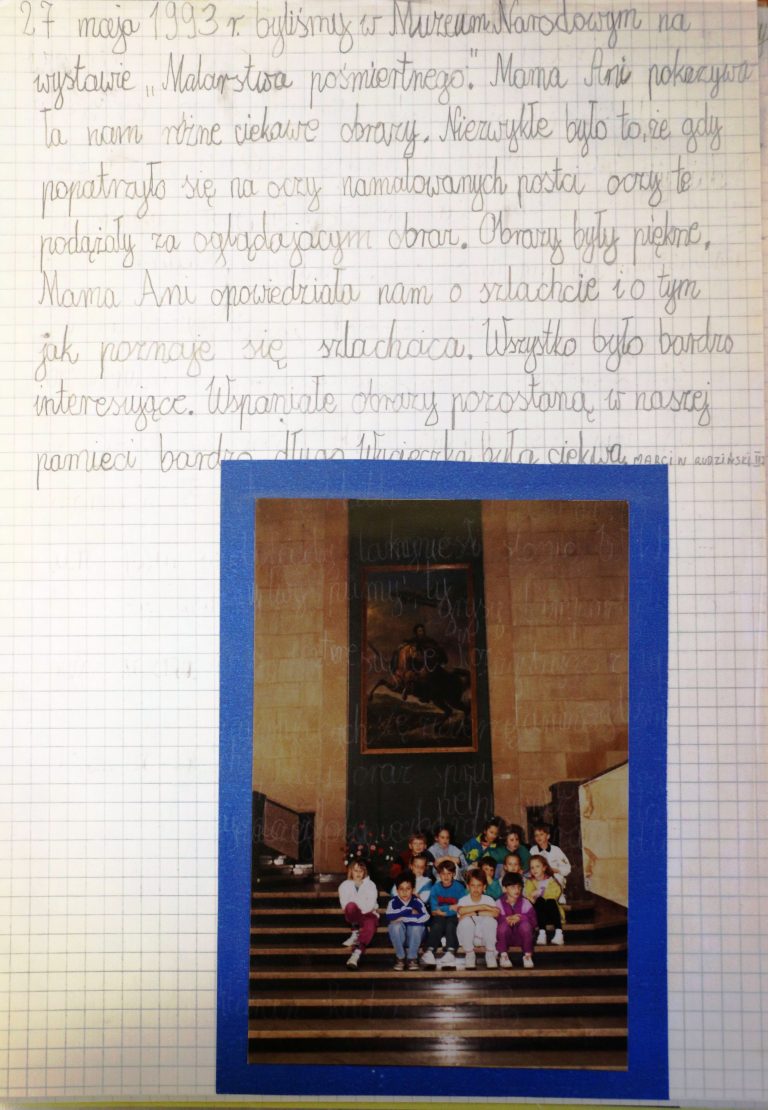 27 maja 1993 r. byliśmy w Muzeum Narodowym na
wystawie „Malarstwa pośmiertnego". Mama Ani pokazywa
ła nam różne ciekawe obrazy. Niezwykłe było to, że gdy
popatrzyło się na oczy namalowanych postci oczy te
podążały za oglądającym obraz. Obrazy były piękne.
Mama Ani opowiedziała nam o szlachcie i o tym
jak poznaje się szlachcica. Wszystko było bardzo
interesujące. Wspaniałe obrazy pozostaną w naszej
pamięci bardzo długo. Wycieczka była ciekwa. MARCIN RUDZIŃSKI